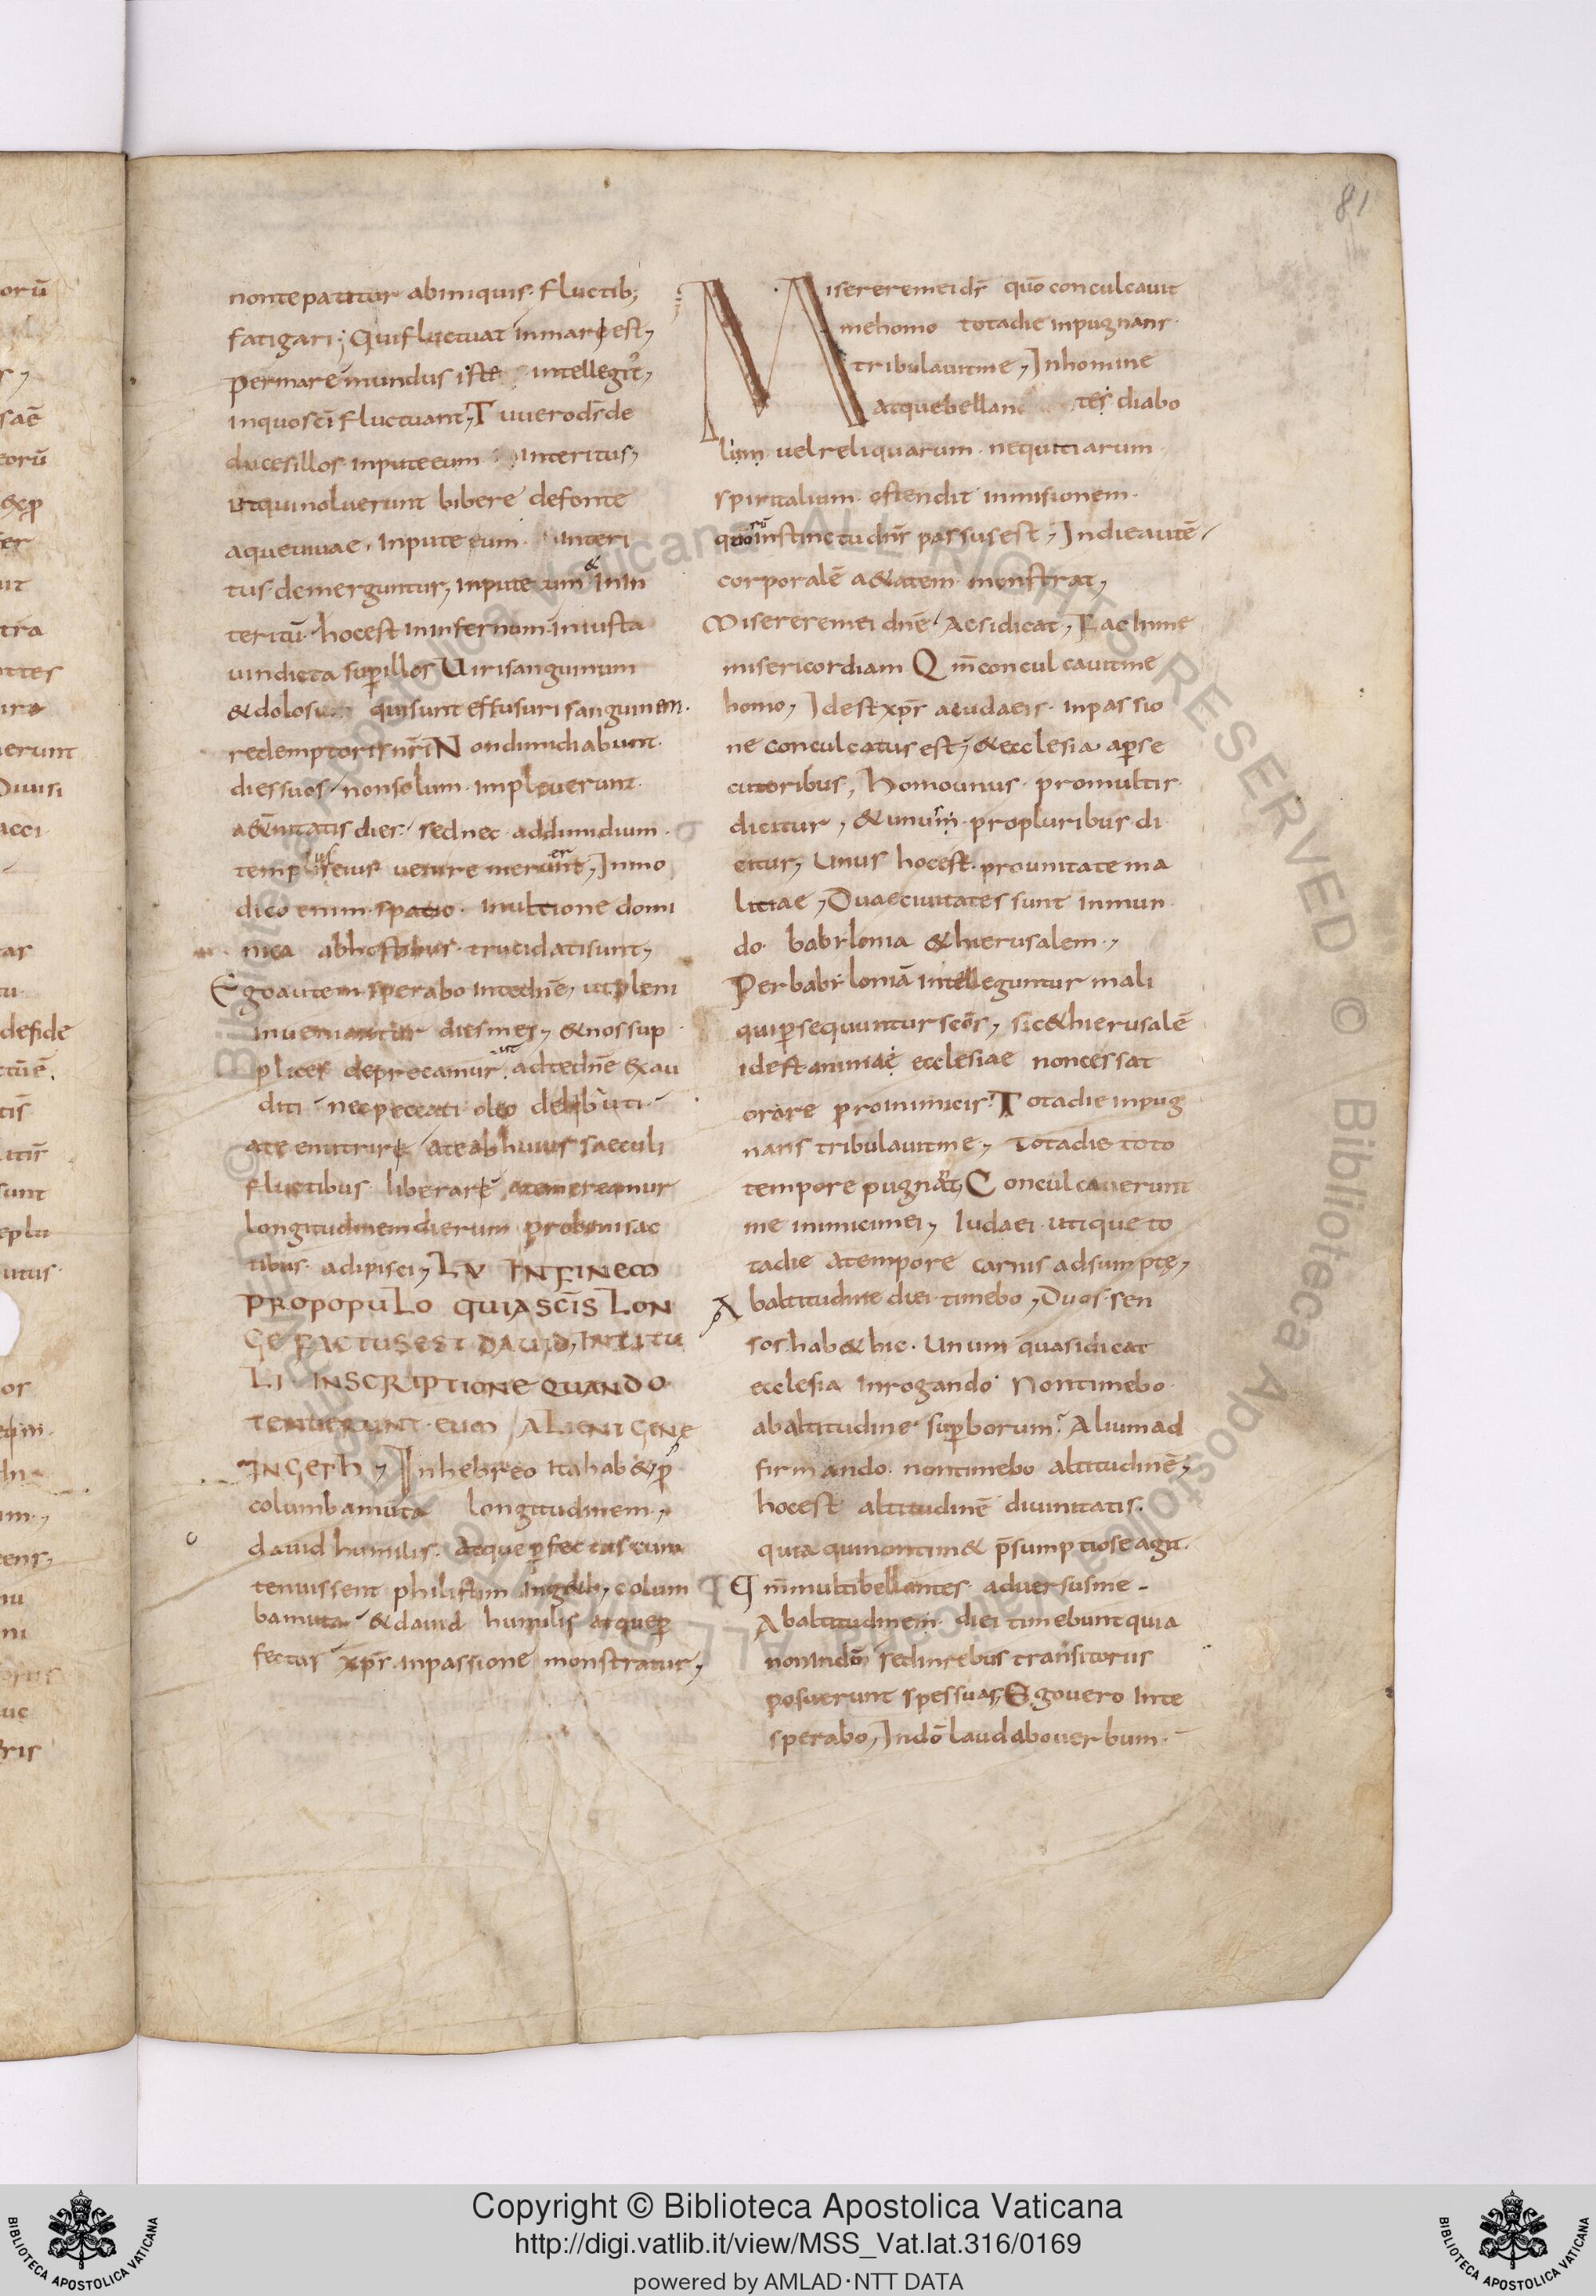 81
non te patitur ab iniquis fluctib;
fatigari; Qui fluctuat in mari est,
per mare mundus iste intellegit,
in quo sci fluctuant, Tu uero ds de
duces illos in puteum interitus,
ut qui noluerunt bibere de fonte
aque uiuae. in puteum interi
tus demerguntur, in puteum & in in
teritū hoc est in infernum in iusta
uindicta sup illos Uiri sanguinum
& dolosi qui sunt effusuri sanguinem.
redemptoris nri Non dimidiabunt
dies suos non solum impleuerunt
dies sed nec ad dimidium
eius uenire merunt, Inmo
dico enim spatio in ultione domi
nica ab hostibus trucidati sunt,
Ego autem sperabo in te dnē, ut pleni
inueniantur dies mei, & nos sup
plices deprecamur ad te dnē exau
diti nec peccati oleo delibuti
a te enutriri a te ab huius saeculi
fluctibus liberari a te mereamur
longitudinem dierum pro bonis ac
tibus adipisci, LV IN FINEM
PRO POPULO QUI A SCĪS LON
GE FACTUS EST DAUID, IN TITU
LI INSCRIPTIONE QUANDO
TENUERUNT EUM ALIENIGENE
IN GETH, In hebreo ita hab& p
columba muta longitudinem,
dauid humilis atque pfectus cum
tenuissent philistim in geth, colum
ba muta & dauid humilis atque p
fectus xps in passione monstratur,
Miserere mei ds quō conculcauit
me homo tota die inpugnans
tribulauit me, In homine
atque bellan tes diabo
lum uel reliquarum nequitiarum
spiritalium ostendit inmisionem.
quorū instinctu dns passus est, In die autē
corporalē a&atem monstrat,
Miserere mei dnē Ac si dicat, Fac in me
misericordiam Qm̄ conculcauit me
homo, Id est xps a iudaeis in passio
ne conculcatus est, & ecclesia a pse
cutoribus, Homo unus pro multis
dicitur, & unum pro pluribus di
citur, Unus hoc est pro unitate ma
litiae, Duae ciuitates sunt in mun
do babilonia & hierusalem,
Per babiloniā intelleguntur mali
qui psequuntur scos, sic & hierusalē
id est animae ecclesiae non cessat
orare pro inimicis Tota die inpug
nans tribulauit me, Tota die toto
tempore pugnat, Conculcauerunt
me inimici mei, Iudaei utique to
ta die a tempore carnis adsumptę,
Ab altitudine diei timebo, Duos sen
sos hab& hic. Unum quasi dicat
ecclesia inrogando Non timebo
ab altitudine supborum? Alium ad
firmando non timebo altitudinē,
hoc est altitudinē diuinitatis.
quia qui non tim& psumptiose agit.
Qm̄ multi bellantes aduersus me
Ab altitudinem diei timebunt quia
non in dō sed in rebus transitoriis
posuerunt spes suas, Ego uero in te
sperabo, In dō laudabo uerbum
Copyright © Biblioteca Apostolica Vaticana
http://digi.vatlib.it/view/MSS_Vat.lat.316/0169
powered by AMLAD·NTT DATA